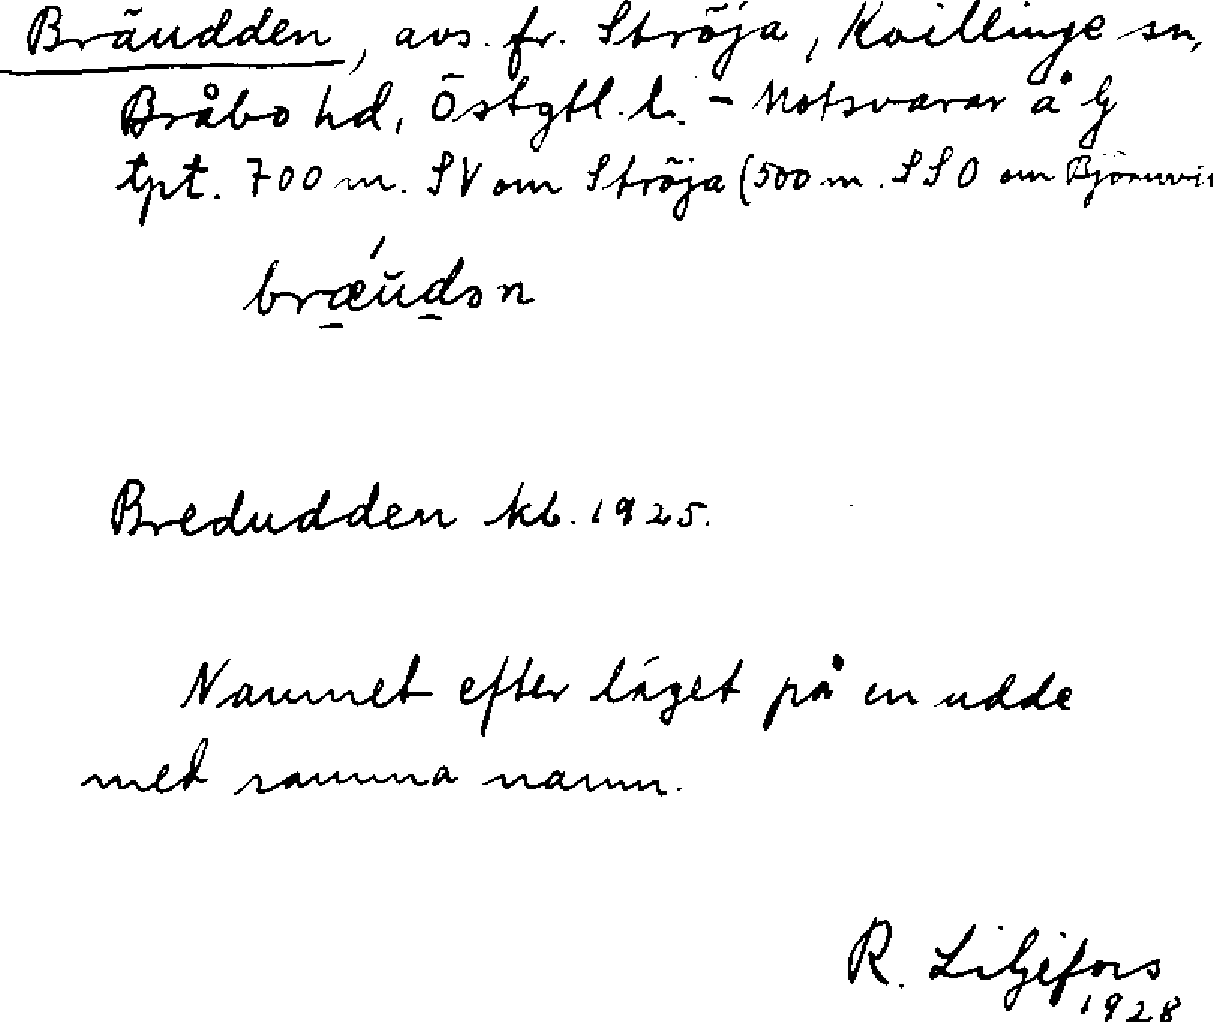 Bräudden, avs. fr. Ströja, Kvillinge sn,
Bråbo hd, Östgtl. l. - Motsvarar å G
tpt. 700 m. SV om Ströja (500 m. SSO om Björnvi
brǽ̱ŭḏən
Bredudden kb. 1925.
Namnet efter läget på en udde
med samma namn.
R. Liljefors
1928